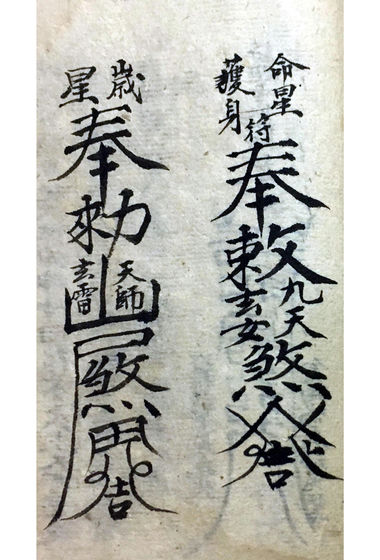 命星
護身
符
奉敕
九天
玄女
煞
歲
星
奉勅
天師
煞